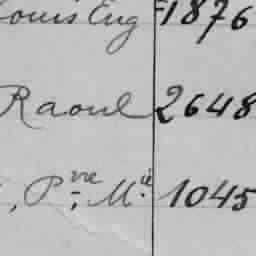 Louis Eug 1876
Raoul 2648
, Pre Mie 1045